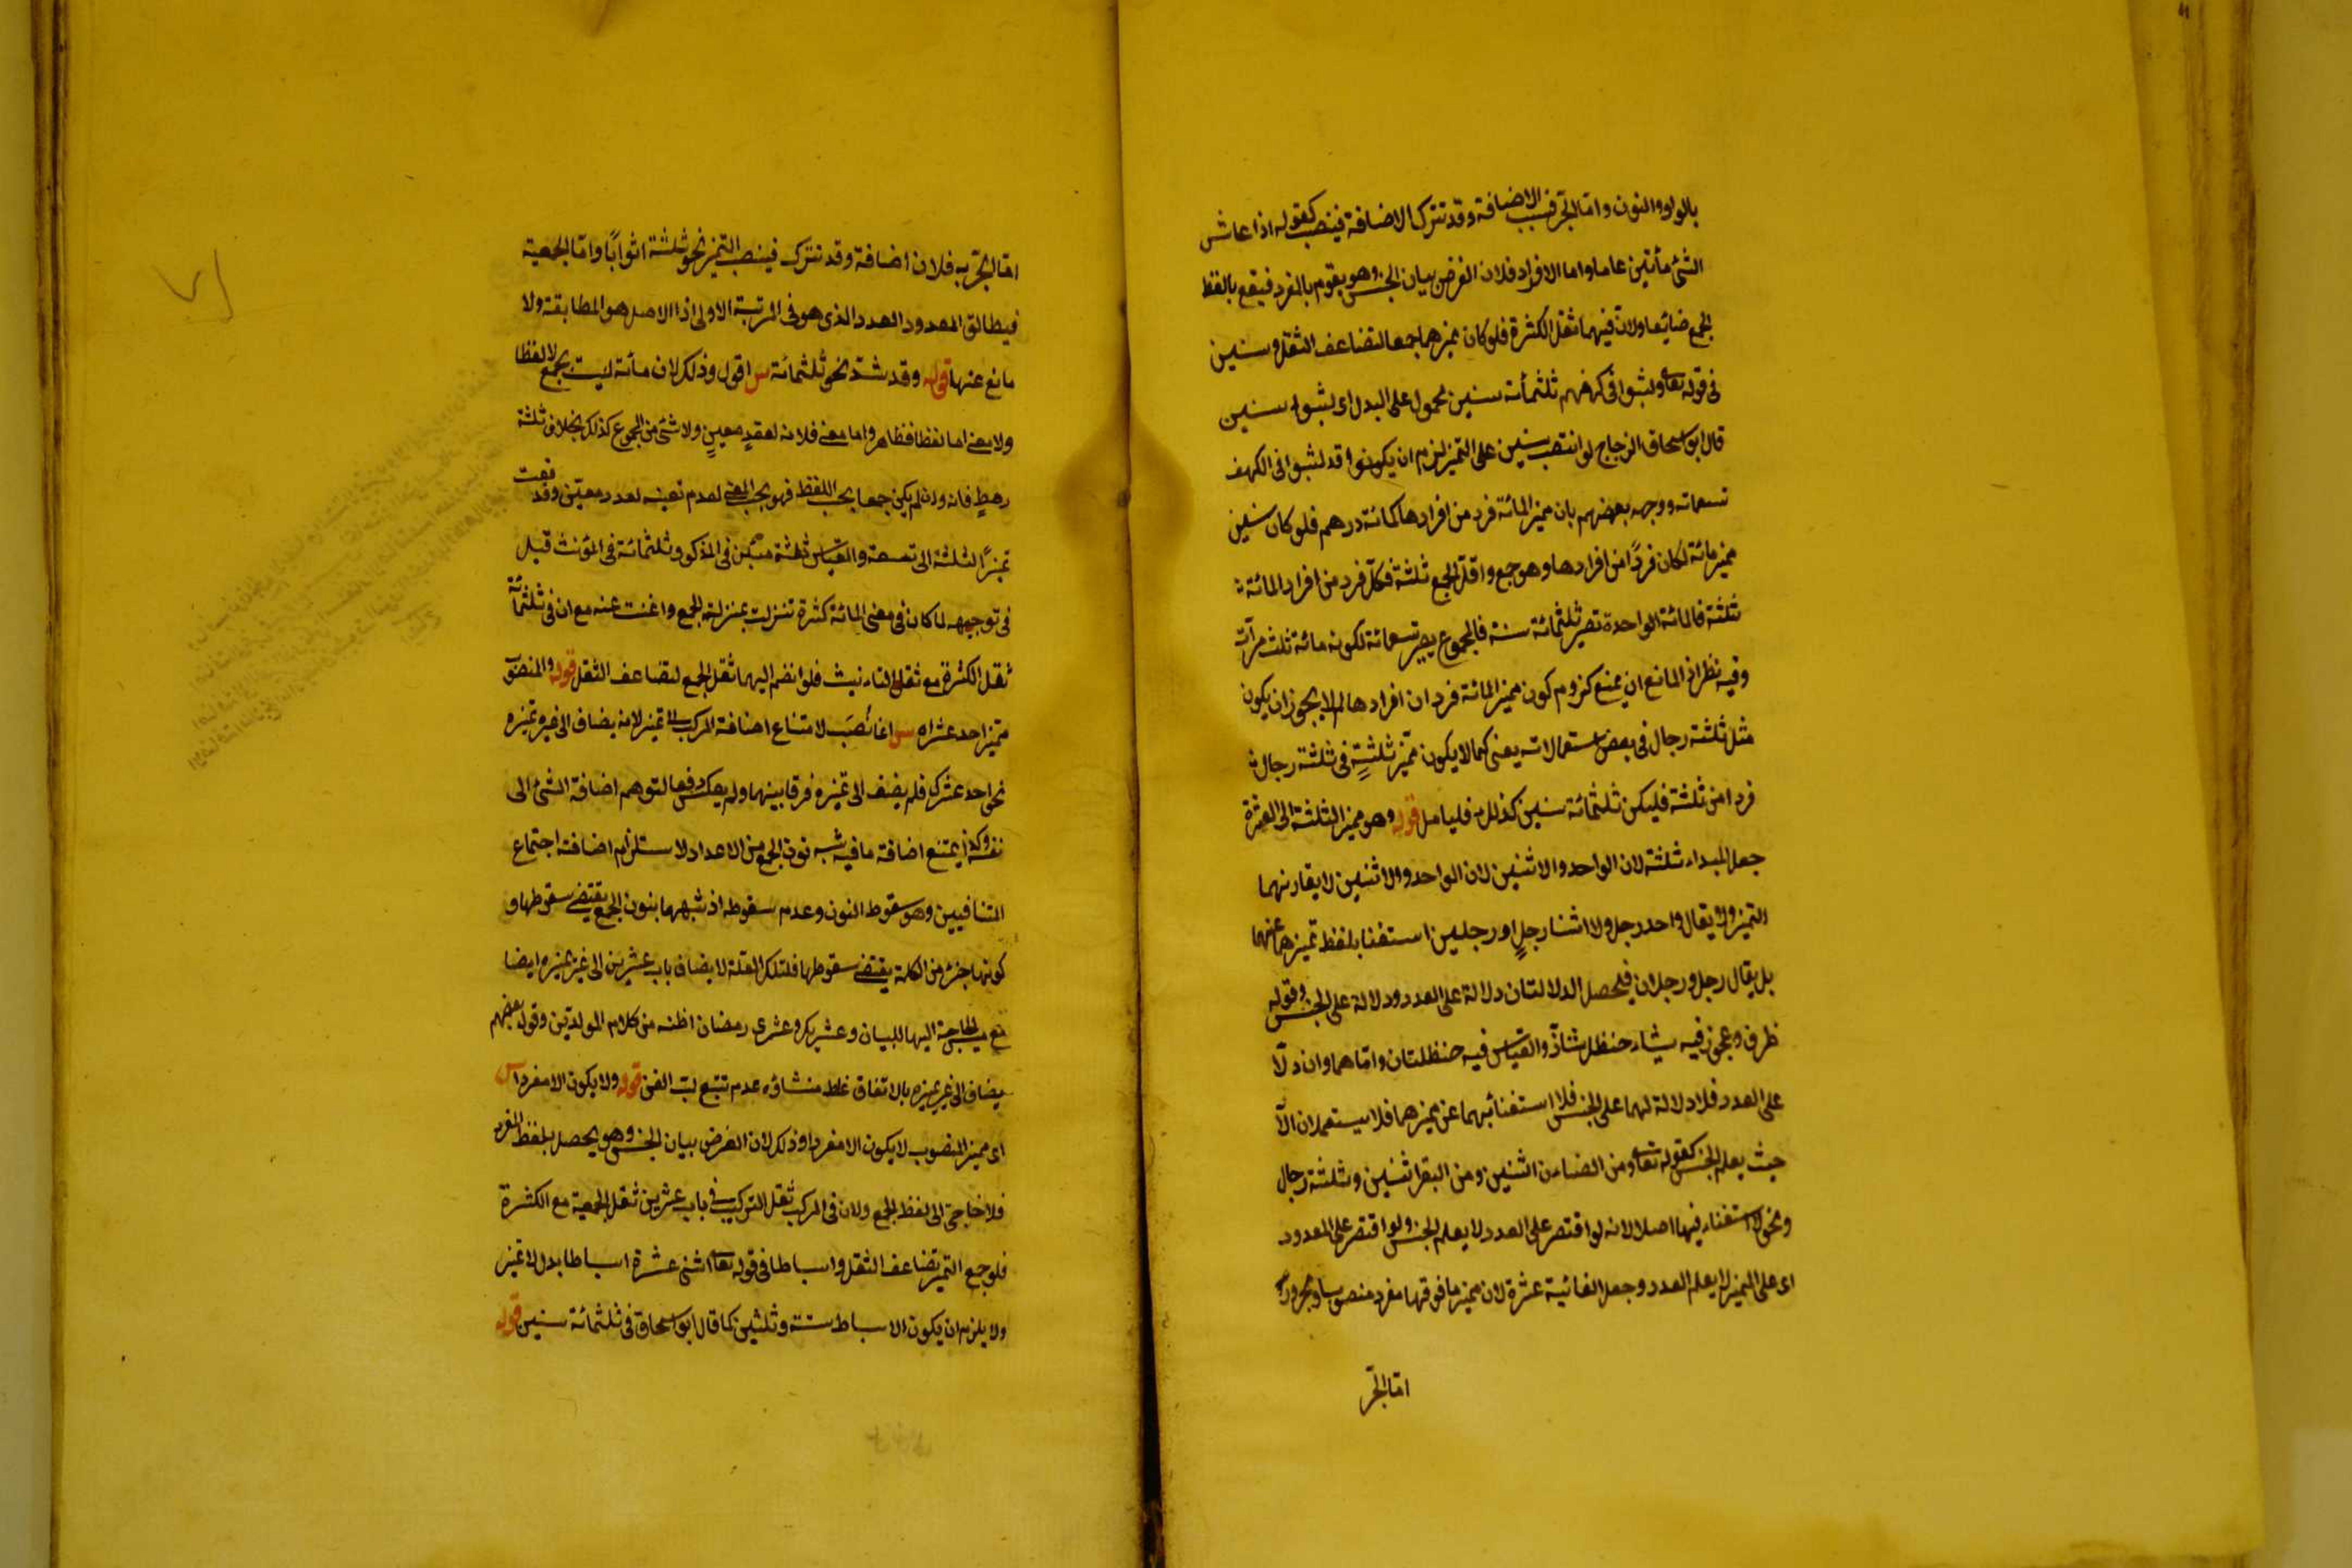 بالواو والنون واما الجر فبسبب الاضافة وقد تترك الاضافة فينصب كقوله اذا عاش
الشئ مأتين عاما واما الافراد فلان الغرض بيان الجنس وهو يقوم بالمفرد فيقع بالفظ
الجمع ضائعا ولان فيهما ثقل الكثرة فلو كان مميزهما جمعا لتضاعف الثقل وسنين
فى قوله تعا ولبثوا فى كهفهم ثلثمأئة سنين محمول على البدل اى لبثوا سنين
قال ابو اسحاق الزجاج لو انتصب سنين على التميز لزم ان يكونوا قد لبثوا فى الكهف
تسعمائه ووجهه بعضهم بان مميز المائة فرد من افرادها كمائة درهم فلو كان سنين
مميز مائة لكان فردًا من افرادها وهو جمع واقل الجمع ثلثة فكل فرد من افراد المائة
ثلثة فالمائة الواحدة تصير ثلثمائة سنة فالمجموع يصير تسعمائة لكونه مائة ثلث مرات
وفيه نظر اذ المانع ان يمنع لزوم كون مميز المائة فردا من افرادها لم لا يجوز ان يكون
مثل ثلثة رجال فى بعض استعمالاته يعنى كما لا يكون مميز ثلثةٍ فى ثلثة رجال
فردا من ثلثة فليكن ثلثمائة سنين كذلك فليامل قوله وهو مميز الثلثة الى العشرة
جعل المبداء ثلثة لان الواحد والاثنين لان الواحد والاثنين لا يقارنهما
التميز ولا يقال واحد رجل ولا اثنا رجلٍ او رجلين استغنا بلفظ تميزهما عنهما
بل يقال رجل ورجلان فيحصل الدلالتان دلالة على العدد ودلالة على الجنس وقوله
ظرف وعجوز فيه ثنتا حنظل شاذّ والقياس فيه حنظلتان واما هما وان دلّا
على العدد فلا دلالة لهما على الجنس فلا استغناء بهما عن مميزهما فلا يستعملان الّا
حيث يعلم الجنس كقوله تعا ومن الضأن اثنين ومن البقر اثنين وثلثة رجال
ونحوه لا استغناء فيها اصلا لانه لو اقتصر على العدد لا يعلم الجنس ولو اقتصر على المعدود
اى على المميز لا يعلم العدد وجعل الغائية عشرة لان مميز ما فوقها مفرد منصوب او مجرور
اما الجر
اما الجر به فلان اضافة وقد تترك فينصب التميز نحو ثلثة اثوابًا واما الجمعية
فيطابق المعدود العدد الذى هو فى المرتبة الاولى اذا الاصل هو المطابقة ولا
مانع عنها قوله وقد شذ نحو ثلثمائة س اقول وذلك لان مأئة ليست بجمع لا لفظا
ولا معنى اما لفظا فظاهر واما معنى فلانه لعقدٍ معينٍ ولا شئ من الجموع كذلك بخلاف ثلثة
رهطٍ فانه وان لم يكن جمعا بحسب اللفظ فهو بحسب المعنى لعدم تعينه لعدد معيّن وقد وقعت
تميزًا لثلثة الى تسعة والقياس ثلثة مئين فى المذكور وثلثمائة فى المؤنث قيل
فى توجيهه لما كان فى معنى المائة كثرة تنزلت بمنزلة الجمع واغنت عنه مع ان فى ثلثمائة
ثقل الكثرة مع ثقل التاءنيث فلو انضم اليهما ثقل الجمع لتضاعف الثقل قوله والمنصوب
مميز احد عشر اه س انما نُصَب لامتناع اضافة المركب الى تميز لانه يضاف الى غير تميزه
نحو احد عشرك فلم يضف الى تميزه فرقا بينهما ولم يعكس دفعا لتوهم اضافة الشئ الى
نفسه وكذا يمتنع اضافة ما فيه شبه نون الجمع من الاعداد لاستلزام اضافته اجتماع
المتنافيين وهو سقوط النون وعدم سقوطه اذ شبهها بنون الجمع يقتضى سقوطها و
كونها جزء من الكلمة يقتضى سقوطها فلتلك العلة لا يضاف باب عشرين الى غير مميزه ايضا
مع مسيس الحاجة اليها للبيان وعشريك وعشرى رمضان اظنه من كلام المولدين وقول بعضهم
يضاف الى غير مميزه بالاتفاق غلط منشاؤه عدم تتبع لب الفن قوله ولا يكون الا مفردا س
اى مميز المنصوب لا يكون الا مفردا وذلك لان الغرض بيان الجنس وهو يحصل بلفظ المفرد
فلا حاجة الى لفظ الجمع ولان فى المركب ثقل التركيب وفى باب عشرين ثقل الجمعية مع الكثرة
فلو جمع التميز تضاعف الثقل واسباطا فى قوله تعا اثنى عشرة اسباطا بدل لا تميز
ولا يلزم ان يكون الاسباط ستة وثلثين كما قال ابو اسحاق فى ثلثمائة سنين قوله